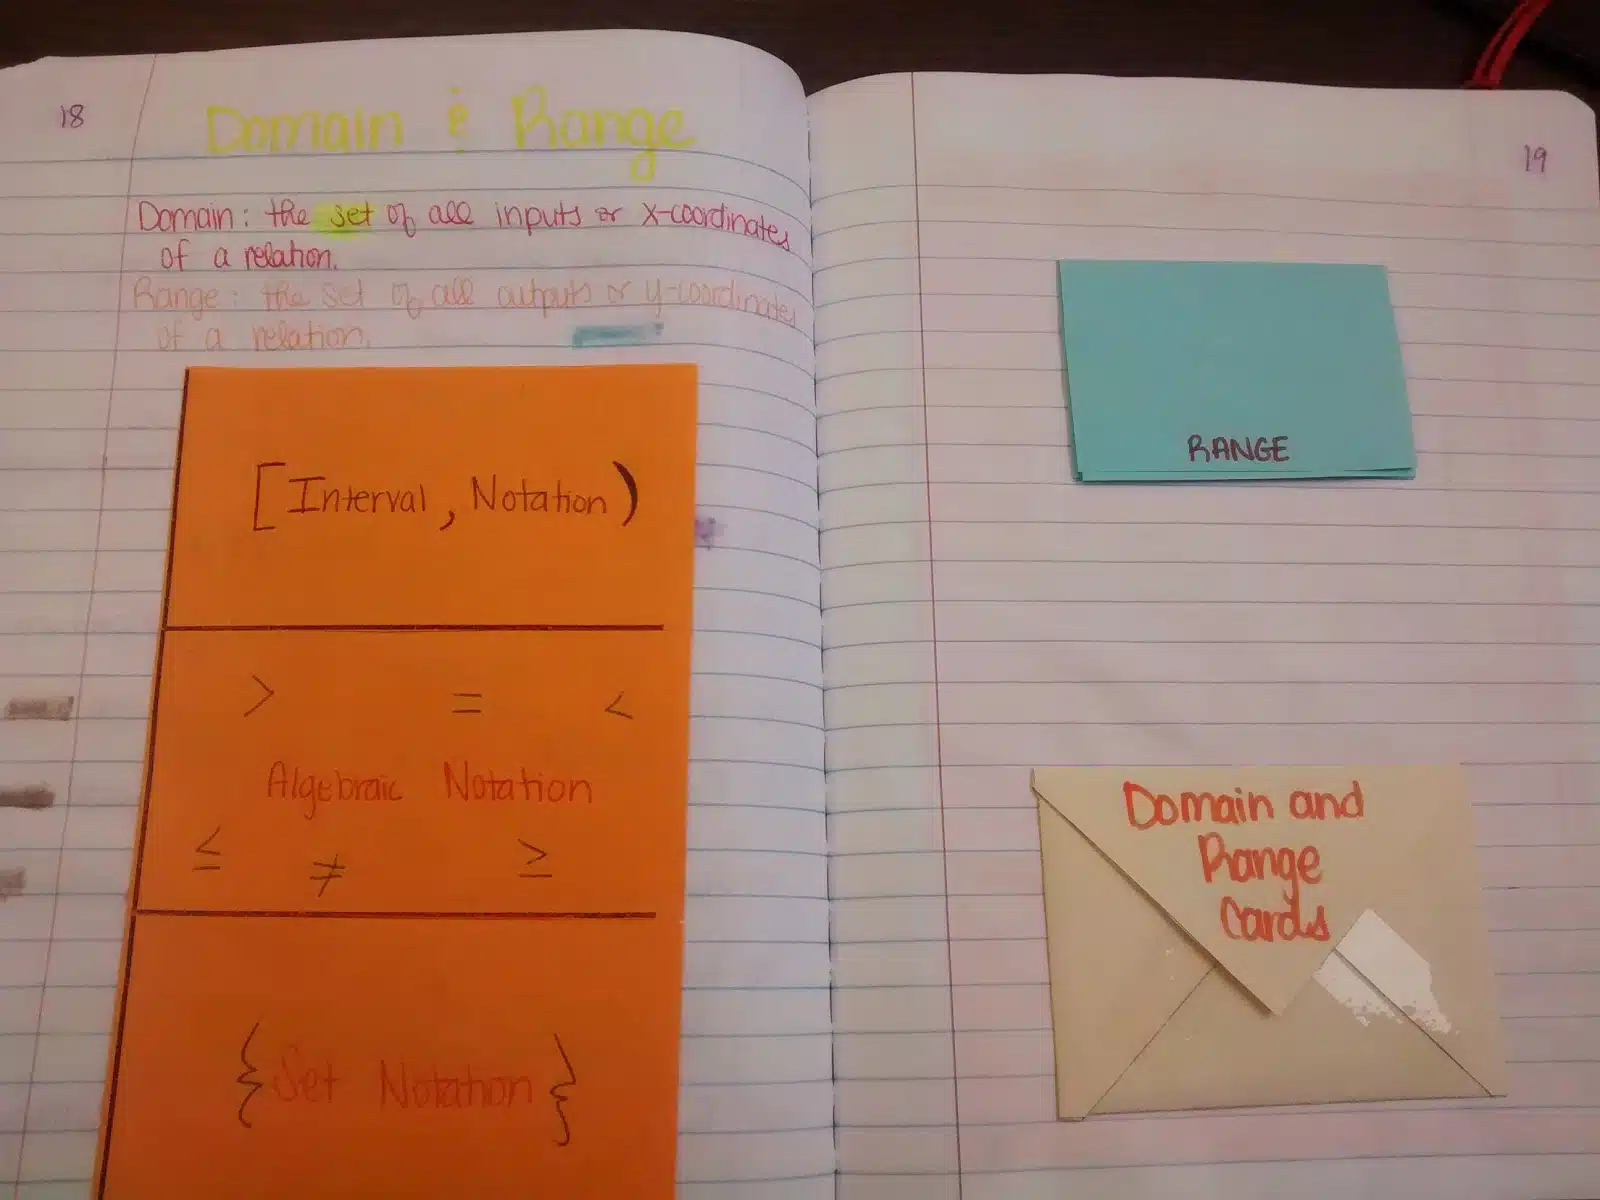 18
Domain & Range
Domain: the set of all inputs or x-coordinates
of a relation.
Range: the set of all outputs or y-coordinates
of a relation.
[Interval, Notation)
> = <
Algebraic Notation
≤ ≠ ≥
{Set Notation}
19
RANGE
Domain and
Range
Cards